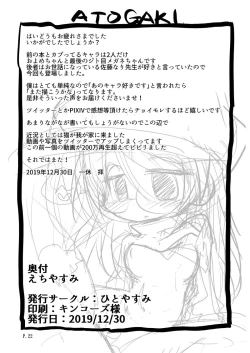 ATOGAKI
はいどうもお疲れさまでした
いかがでしたでしょうか？
前の本とカブってるキャラは2人だけ
およめちゃんと最後のジト目メガネちゃんです
後者はお世話になっている佐藤なり先生が好きと言っていたので
今回も登場しました。
僕はとても単純なので「あのキャラ好きです」と言われたら
「また描こうかな」ってなります。
是非そういった声をお届けくださいませ！
ツイッターとかPIXIVに感想等頂けたらチョイモレするほど嬉しいです
あまりながなが書いてもしょうがないのでこの辺で
近況としては猫が我が家に来ました
動画や写真をツイッターでアップしまくってます
この前一個の動画が200万再生超えてビビりました
それではまた！
2019年12月30日　一休　拝
奥付
えちやすみ
発行サークル：ひとやすみ
印刷：キンコーズ様
発行日：2019/12/30
P. 22